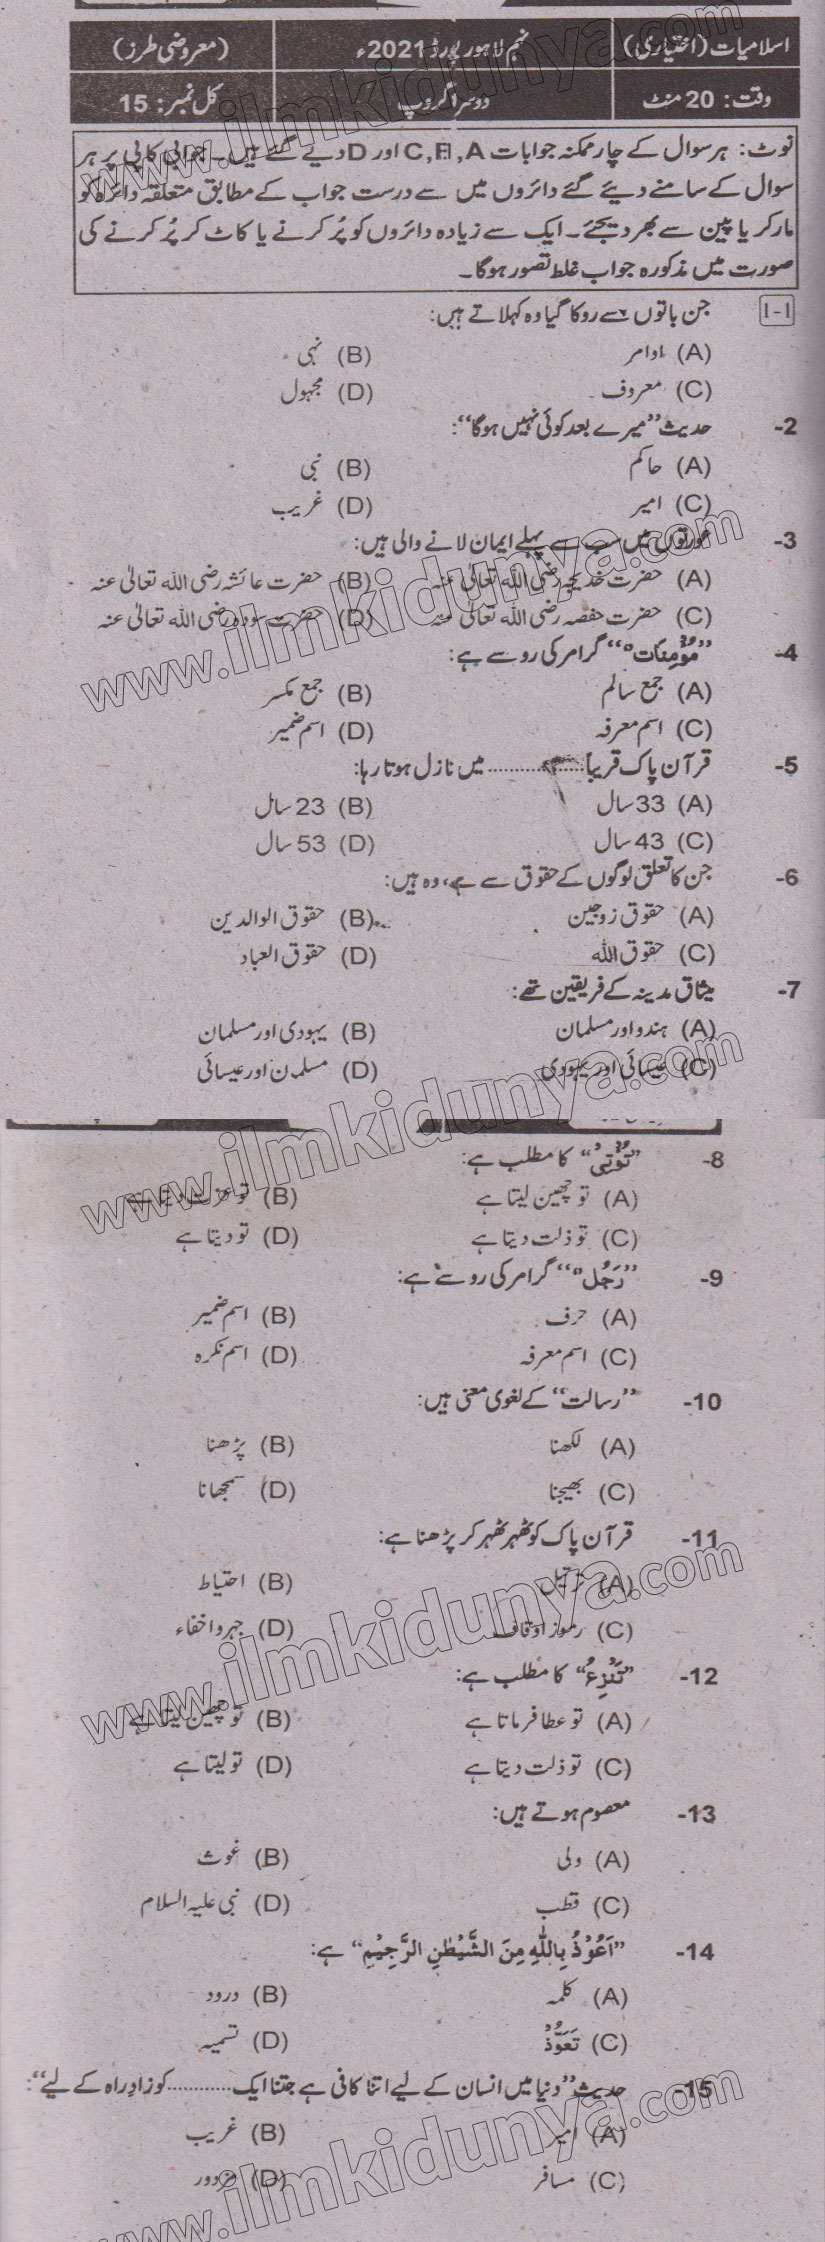 اسلامیات (اختیاری) نہم لاہور بورڈ 2021ء (معروضی طرز)
وقت: 20 منٹ دوسرا گروپ کل نمبر: 15
نوٹ: ہر سوال کے چار ممکنہ جوابات A, B, C اور D دیے گئے ہیں۔ جوابی کاپی پر ہر
سوال کے سامنے دیئے گئے دائروں میں سے درست جواب کے مطابق متعلقہ دائرہ کو
مارکر یا پین سے بھر دیجئے۔ ایک سے زیادہ دائروں کو پُر کرنے یا کاٹ کر پُر کرنے کی
صورت میں مذکورہ جواب غلط تصور ہوگا۔
1-1 جن باتوں سے روکا گیا وہ کہلاتے ہیں:
(A) اوامر (B) نہی
(C) معروف (D) مجہول
2- حدیث ”میرے بعد کوئی نہیں ہوگا“:
(A) حاکم (B) نبی
(C) امیر (D) غریب
3- عورتوں میں سب سے پہلے ایمان لانے والی ہیں:
(A) حضرت خدیجہ رضی اللہ تعالیٰ عنہ (B) حضرت عائشہ رضی اللہ تعالیٰ عنہ
(C) حضرت حفصہ رضی اللہ تعالیٰ عنہ (D) حضرت سودہ رضی اللہ تعالیٰ عنہ
4- ”مُؤْمِنَاتٌ“ گرامر کی رو سے ہے:
(A) جمع سالم (B) جمع مکسر
(C) اسم معرفہ (D) اسم ضمیر
5- قرآن پاک قریباً ............ میں نازل ہوتا رہا:
(A) 33 سال (B) 23 سال
(C) 43 سال (D) 53 سال
6- جن کا تعلق لوگوں کے حقوق سے ہے، وہ ہیں:
(A) حقوق زوجین (B) حقوق الوالدین
(C) حقوق اللہ (D) حقوق العباد
7- میثاق مدینہ کے فریقین تھے:
(A) ہندو اور مسلمان (B) یہودی اور مسلمان
(C) عیسائی اور یہودی (D) مسلمان اور عیسائی
8- ”تُؤْتِی“ کا مطلب ہے:
(A) تو چھین لیتا ہے (B) تو عزت دیتا ہے
(C) تو ذلت دیتا ہے (D) تو دیتا ہے
9- ”رَجُلٌ“ گرامر کی رو سے ہے:
(A) حرف (B) اسم ضمیر
(C) اسم معرفہ (D) اسم نکرہ
10- ”رسالت“ کے لغوی معنی ہیں:
(A) لکھنا (B) پڑھنا
(C) بھیجنا (D) سمجھانا
11- قرآن پاک کو ٹھہر ٹھہر کر پڑھنا ہے:
(A) ترتیل (B) احتیاط
(C) رموز اوقاف (D) جہر و اخفاء
12- ”تَنْزِعُ“ کا مطلب ہے:
(A) تو عطا فرماتا ہے (B) تو چھین لیتا ہے
(C) تو ذلت دیتا ہے (D) تو لیتا ہے
13- معصوم ہوتے ہیں:
(A) ولی (B) غوث
(C) قطب (D) نبی علیہ السلام
14- ”اَعُوْذُ بِاللّٰهِ مِنَ الشَّيْطٰنِ الرَّجِيْمِ“ ہے:
(A) کلمہ (B) درود
(C) تَعَوُّذْ (D) تسمیہ
15- حدیث ”دنیا میں انسان کے لیے اتنا کافی ہے جتنا ایک ............ کو زادِ راہ کے لیے“:
(A) امیر (B) غریب
(C) مسافر (D) مزدور
www.ilmkidunya.com
www.ilmkidunya.com
www.ilmkidunya.com
www.ilmkidunya.com
www.ilmkidunya.com